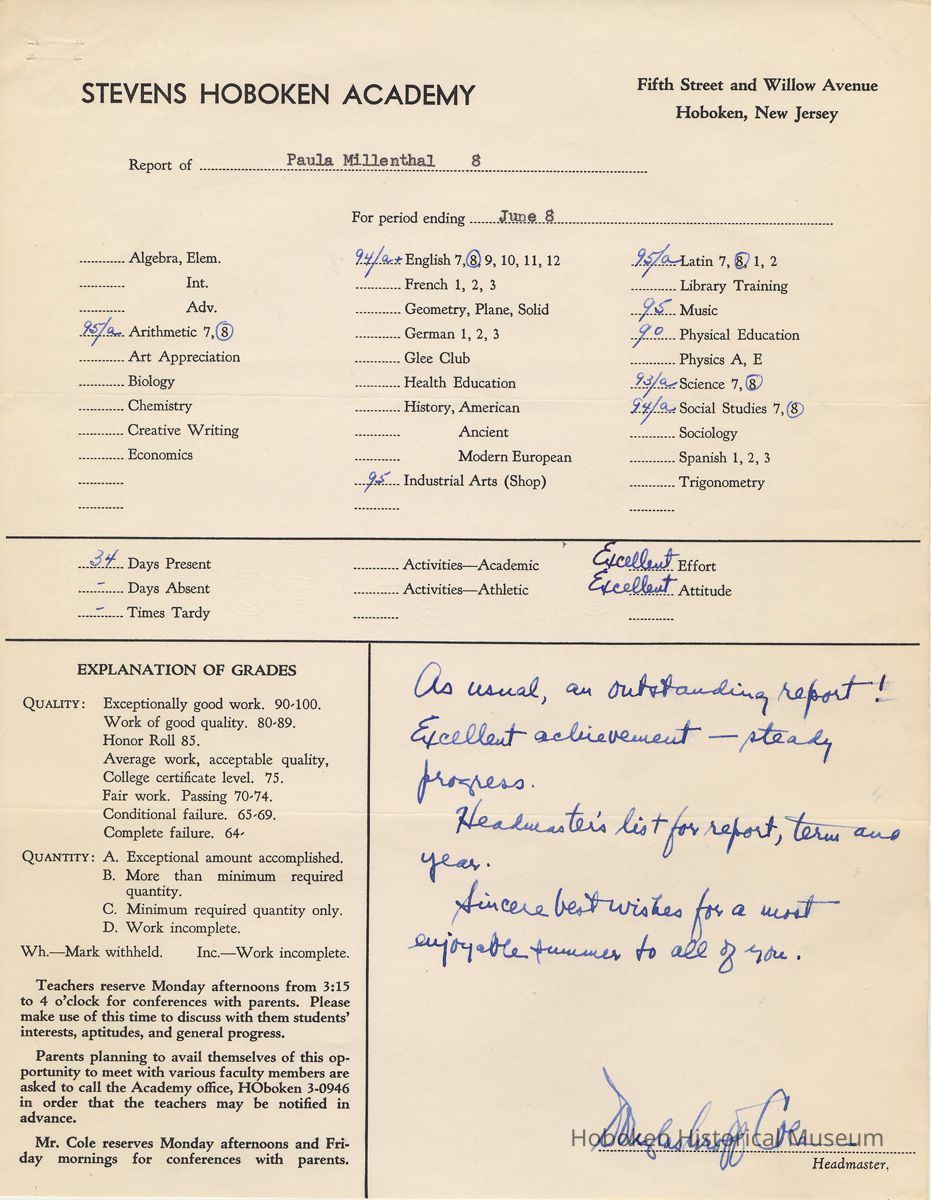 STEVENS HOBOKEN ACADEMY
Fifth Street and Willow Avenue
Hoboken, New Jersey
Report of Paula Millenthal 8
For period ending June 8
Algebra, Elem.
Int.
Adv.
95/a Arithmetic 7, 8
Art Appreciation
Biology
Chemistry
Creative Writing
Economics
94/a+ English 7, 8, 9, 10, 11, 12
French 1, 2, 3
Geometry, Plane, Solid
German 1, 2, 3
Glee Club
Health Education
History, American
Ancient
Modern European
95 Industrial Arts (Shop)
95/a Latin 7, 8, 1, 2
Library Training
95 Music
90 Physical Education
Physics A, E
93/a Science 7, 8
94/a Social Studies 7, 8
Sociology
Spanish 1, 2, 3
Trigonometry
34 Days Present
- Days Absent
- Times Tardy
Activities—Academic
Activities—Athletic
Excellent Effort
Excellent Attitude
EXPLANATION OF GRADES
QUALITY: Exceptionally good work. 90-100.
Work of good quality. 80-89.
Honor Roll 85.
Average work, acceptable quality,
College certificate level. 75.
Fair work. Passing 70-74.
Conditional failure. 65-69.
Complete failure. 64-
QUANTITY: A. Exceptional amount accomplished.
B. More than minimum required
quantity.
C. Minimum required quantity only.
D. Work incomplete.
Wh.—Mark withheld. Inc.—Work incomplete.
Teachers reserve Monday afternoons from 3:15
to 4 o'clock for conferences with parents. Please
make use of this time to discuss with them students'
interests, aptitudes, and general progress.
Parents planning to avail themselves of this op-
portunity to meet with various faculty members are
asked to call the Academy office, HOboken 3-0946
in order that the teachers may be notified in
advance.
Mr. Cole reserves Monday afternoons and Fri-
day mornings for conferences with parents.
As usual, an outstanding report!
Excellent achievement — steady
progress.
Headmaster's list for report, term and
year.
Sincere best wishes for a most
enjoyable summer to all of you.
Hoboken Historical Museum
Headmaster.